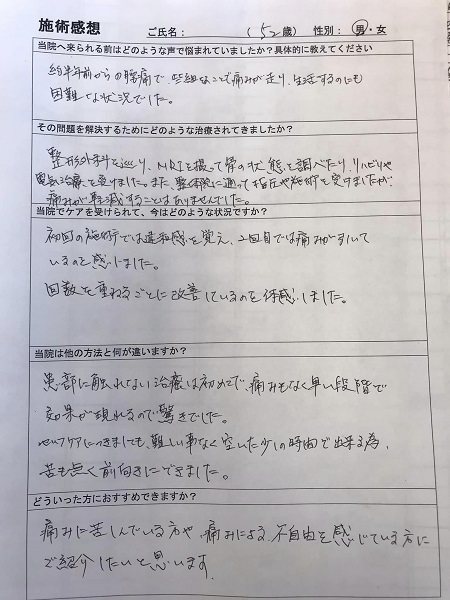 施術感想 ご氏名: (52歳) 性別: 男・女
当院へ来られる前はどのような声で悩まれていましたか?具体的に教えてください
約半年前からの腰痛で、些細なことで痛みが走り、生活するのにも
困難な状況でした。
その問題を解決するためにどのような治療されてきましたか?
整形外科を巡り、MRIを撮って骨の状態を調べたり、リハビリや
電気治療を受けました。また、整体院に通って指圧や施術を受けましたが
痛みが軽減することはありませんでした。
当院でケアを受けられて、今はどのような状況ですか?
初回の施術では違和感を覚え、2回目では痛みが引いて
いるのを感じました。
回数を重ねるごとに改善しているのを体感しました。
当院は他の方法と何が違いますか?
患部に触れない治療は初めてで、痛みもなく早い段階で
効果が現れるので驚きでした。
セルフケアにつきましても、難しい事なく空いた少しの時間で出来る為、
苦も無く前向きにできました。
どういった方におすすめできますか?
痛みに苦しんでいる方や、痛みによる不自由を感じている方に
ご紹介したいと思います。